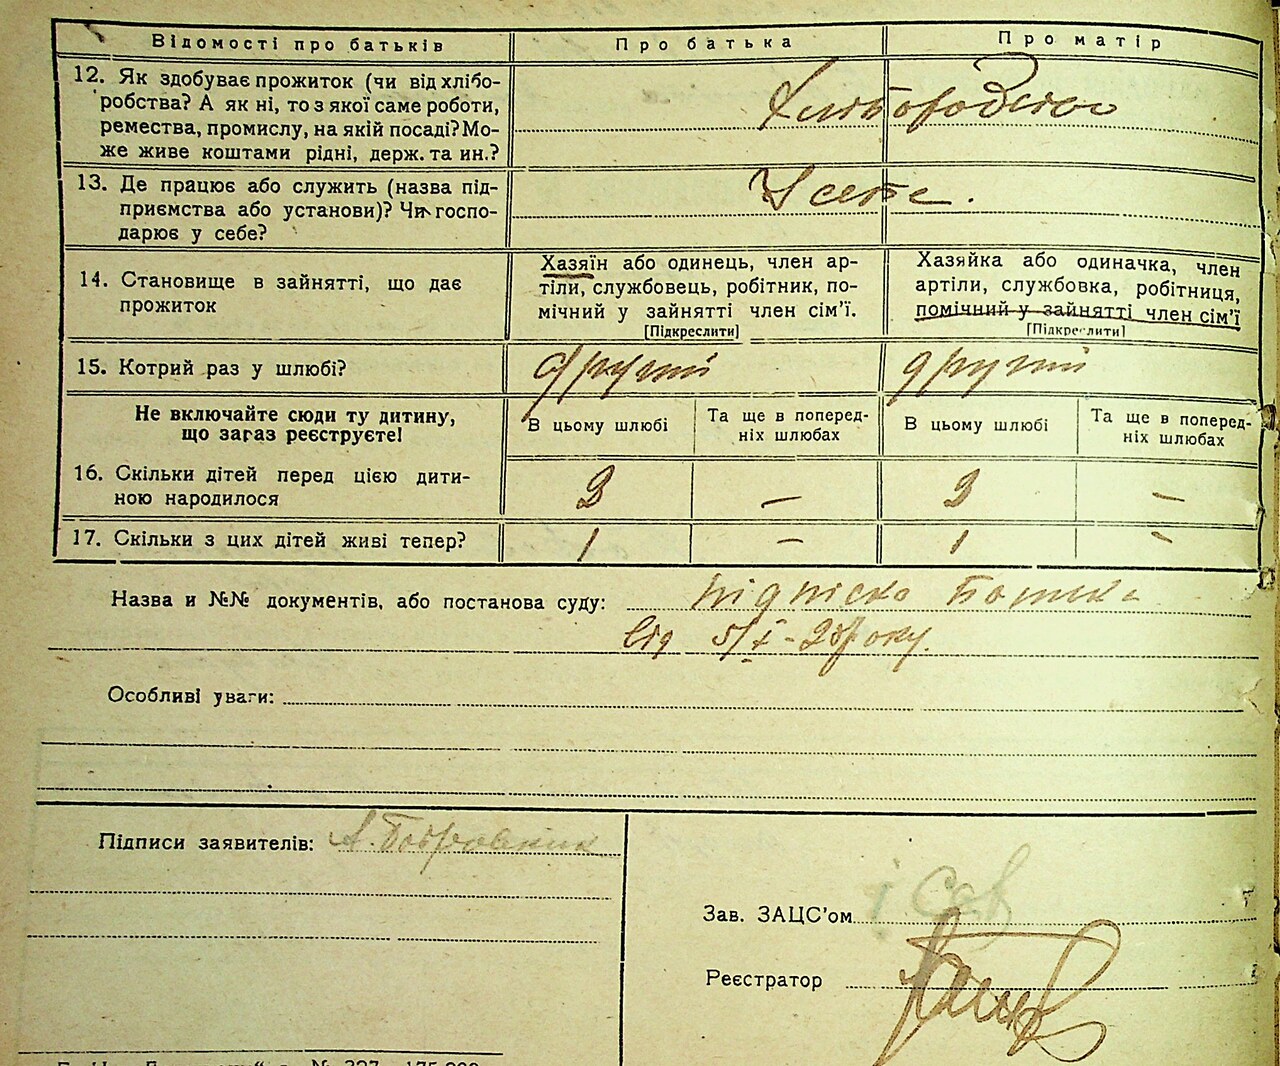 Відомості про батьків Про батька Про матір
12. Як здобуває прожиток (чи від хлібо-
робства? А як ні, то з якої саме роботи,
ремества, промислу, на якій посаді? Мо-
же живе коштами рідні, держ. та ин.?
Хліборобство
13. Де працює або служить (назва під-
приємства або установи)? Чи госпо-
дарює у себе?
У себе.
14. Становище в зайнятті, що дає
прожиток
Хазяїн або одинець, член ар-
тіли, службовець, робітник, по-
мічний у зайнятті член сім'ї.
[Підкреслити]
Хазяйка або одиначка, член
артіли, службовка, робітниця,
помічний у зайнятті член сім'ї
[Підкреслити]
15. Котрий раз у шлюбі? другий другий
Не включайте сюди ту дитину,
що загаз реєструєте!
В цьому шлюбі
Та ще в поперед-
ніх шлюбах
В цьому шлюбі
Та ще в поперед-
ніх шлюбах
16. Скільки дітей перед цією дити-
ною народилося
3 — 3 —
17. Скільки з цих дітей живі тепер? 1 — 1 -
Назва и №№ документів, або постанова суду: підписка батька
від 5/X - 28 року.
Особливі уваги:
Підписи заявителів: А.
Зав. ЗАЦС'ом
Реєстратор
№ 327 175.000